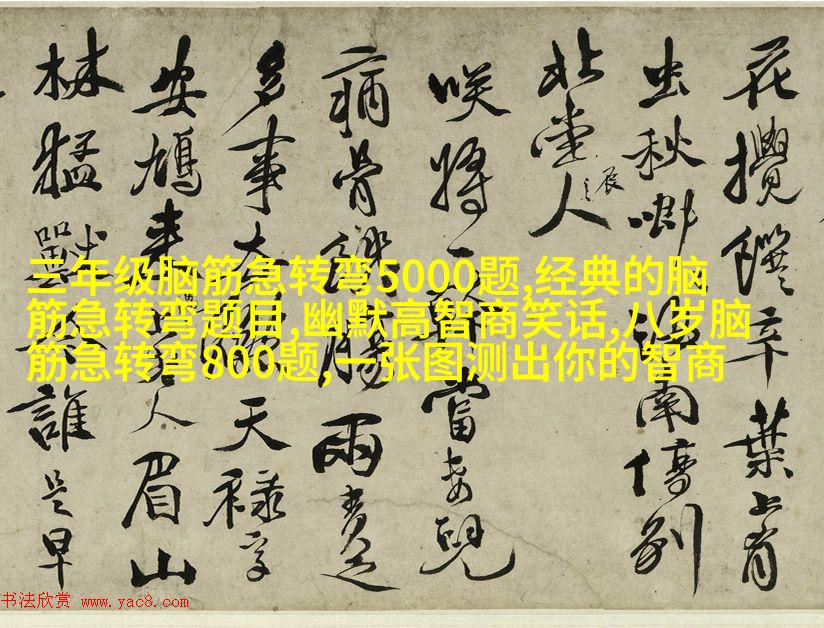 花攪饌辛葉上有
虫秋南
北堂人
咲將一當兒
病骨腸兩
多事大天祿字
安鳩来人眉山
林猛獸誰是早
三年级脑筋急转弯5000题,经典的脑
筋急转弯题目,幽默高智商笑话,八岁脑
筋急转弯800题,一张图测出你的智商
书法欣赏 www.yac8.com